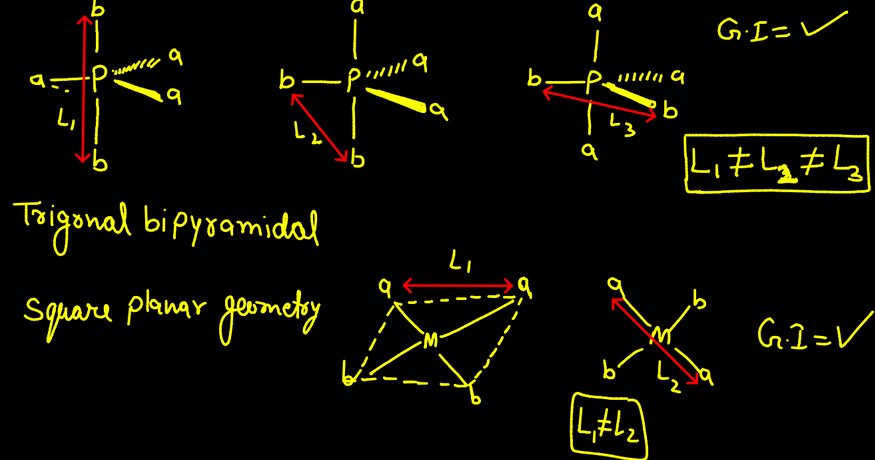 b
a P a
a
L₁
b
a
b P a
a
L₂
b
a
b P a
b
L₃
a
G.I = ✓
L₁ ≠ L₂ ≠ L₃
Trigonal bipyramidal
Square planar geometry
L₁
a a
M
b b
a b
M
b a
L₂
G.I = ✓
L₁ ≠ L₂